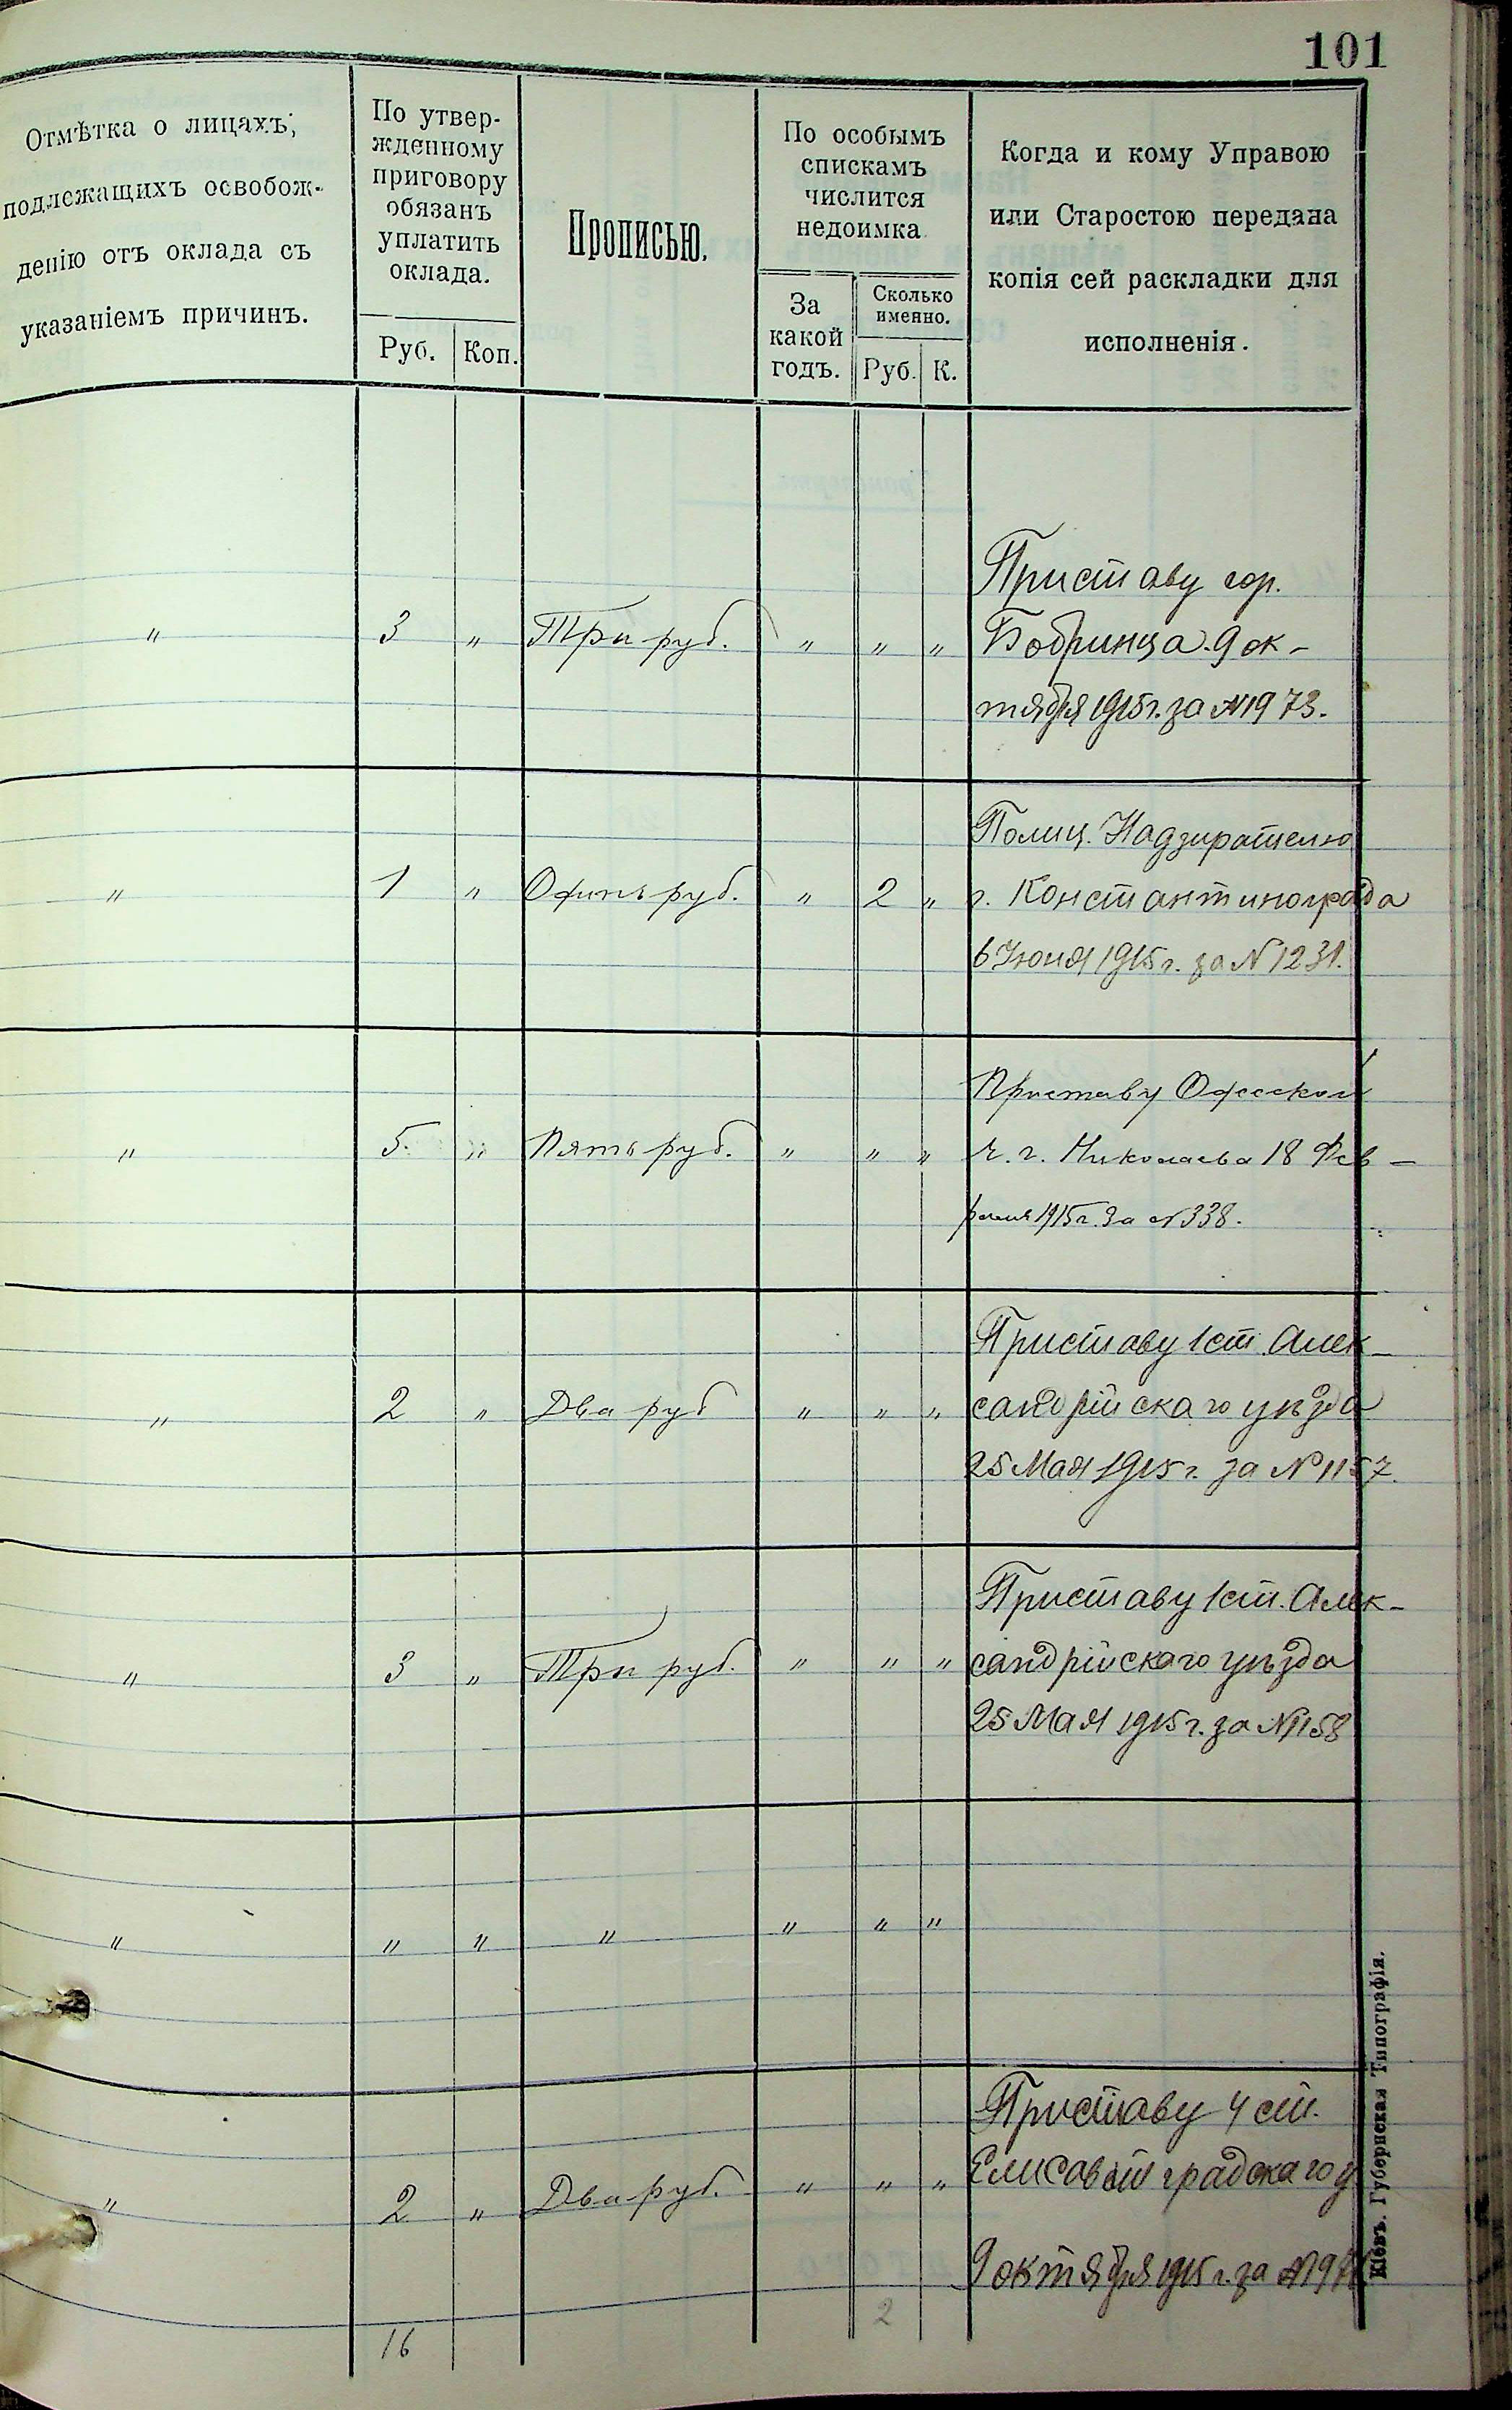 101
Отмѣтка о лицахъ,
подлежащихъ освобож-
денію отъ оклада съ
указаніемъ причинъ.
По утвер-
жденному
приговору
обязанъ
уплатить
оклада.
Руб. Коп.
Прописью.
По особымъ
спискамъ
числится
недоимка
За
какой
годъ.
Сколько
именно.
Руб. К.
Когда и кому Управою
или Старостою передана
копія сей раскладки для
исполненія.
Приставу гор.
" 3 " Три руб. " " " Бобринца 9 ок-
тября 1915 г. за №1973.
Полиц. Надзирателю
" 1 " Одинъ руб. " 2 " г. Константинограда
6 Июня 1915 г. за № 1231.
Приставу Одесской
" 5. " Пять руб. " " " ч. г. Николаева 18 Фев-
раля 1915 г. за № 338.
Приставу 1 ст. Алек-
" 2 " Два руб " " " сандрійскаго уѣзда
25 Мая 1915 г. за № 1157.
Приставу 1 ст. Алек-
" 3 " Три руб. " " " сандрійскаго уѣзда
25 Мая 1915 г. за №1158
" " " " " " "
Приставу 4 ст.
" 2 " Два руб. " " " Елисаветградскаго у
9 октября 1915 г. за
16 2
Кіевъ. Губернская Типографія.